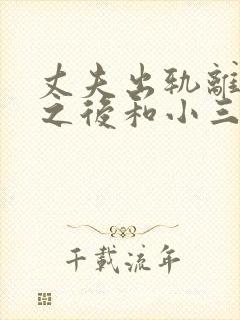 丈夫出轨離
之後和小三
千載流年